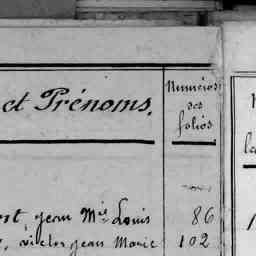 et Prénoms.
Numéros
des
folios
Jean Mie Louis 86
victor jean Marie 102